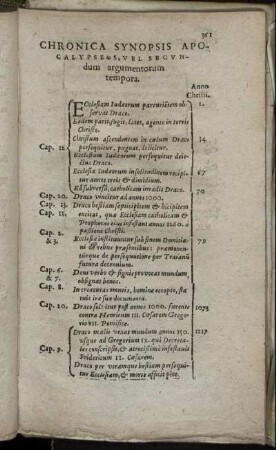 361
CHRONICA SYNOPSIS APO-
CALYPSEOS, VEL SECVN-
dum argumentorum
tempora.
Anno
Christi.
Ecclesiam Iudaeorum parturientem ob
servat Draco. 1.
Eadem parit, fugit, latet, agente in terris
Christo.
Christum ascendentem in caelum Draco 34
persequitur, pugnat, deiicitur.
Cap. 12. Ecclesiam Iudaeorum persequitur dei
ectus Draco.
Ecclesia Iudaeorum in solitudinem reci- 67
pitur annos tres & dimidium.
Ea subversa, catholicam invadit Draco. 70
Cap. 20. Draco vincitur ad annos 1000.
Cap. 13. Draco bestiam septicipitem & bicipitem
Cap. 11. excitat, quae Ecclesiam catholicam &
Prophetas eius infestant annos 1260. a
passione Christi.
Cap. 2. & 3. Ecclesiae instituuntur sub finem Domitia- 79
ni de rebus praesentibus: praemonen-
turque de persequutione per Traianum
futura decennium.
Cap. 6. & 7. Deus verbo & signis provocat mundum,
obsignat bonos.
Cap. 8. In creaturas omnes, homine excepto, sta
tuit irae suae documenta.
Cap. 20. Draco solvitur post annos 1000. furente 1073
contra Henricum III. Caesarem Grego-
rio VII. Pontifice.
Draco malis vexat mundum annos 150. 1217
usque ad Gregorium IX. qui Decreta-
Cap. 9. les conscripsit, & atrocissime infestavit
Fridericum II. Caesarem.
Draco per utramque bestiam persequi-
tur Ecclesiam, & morte afficit pios.